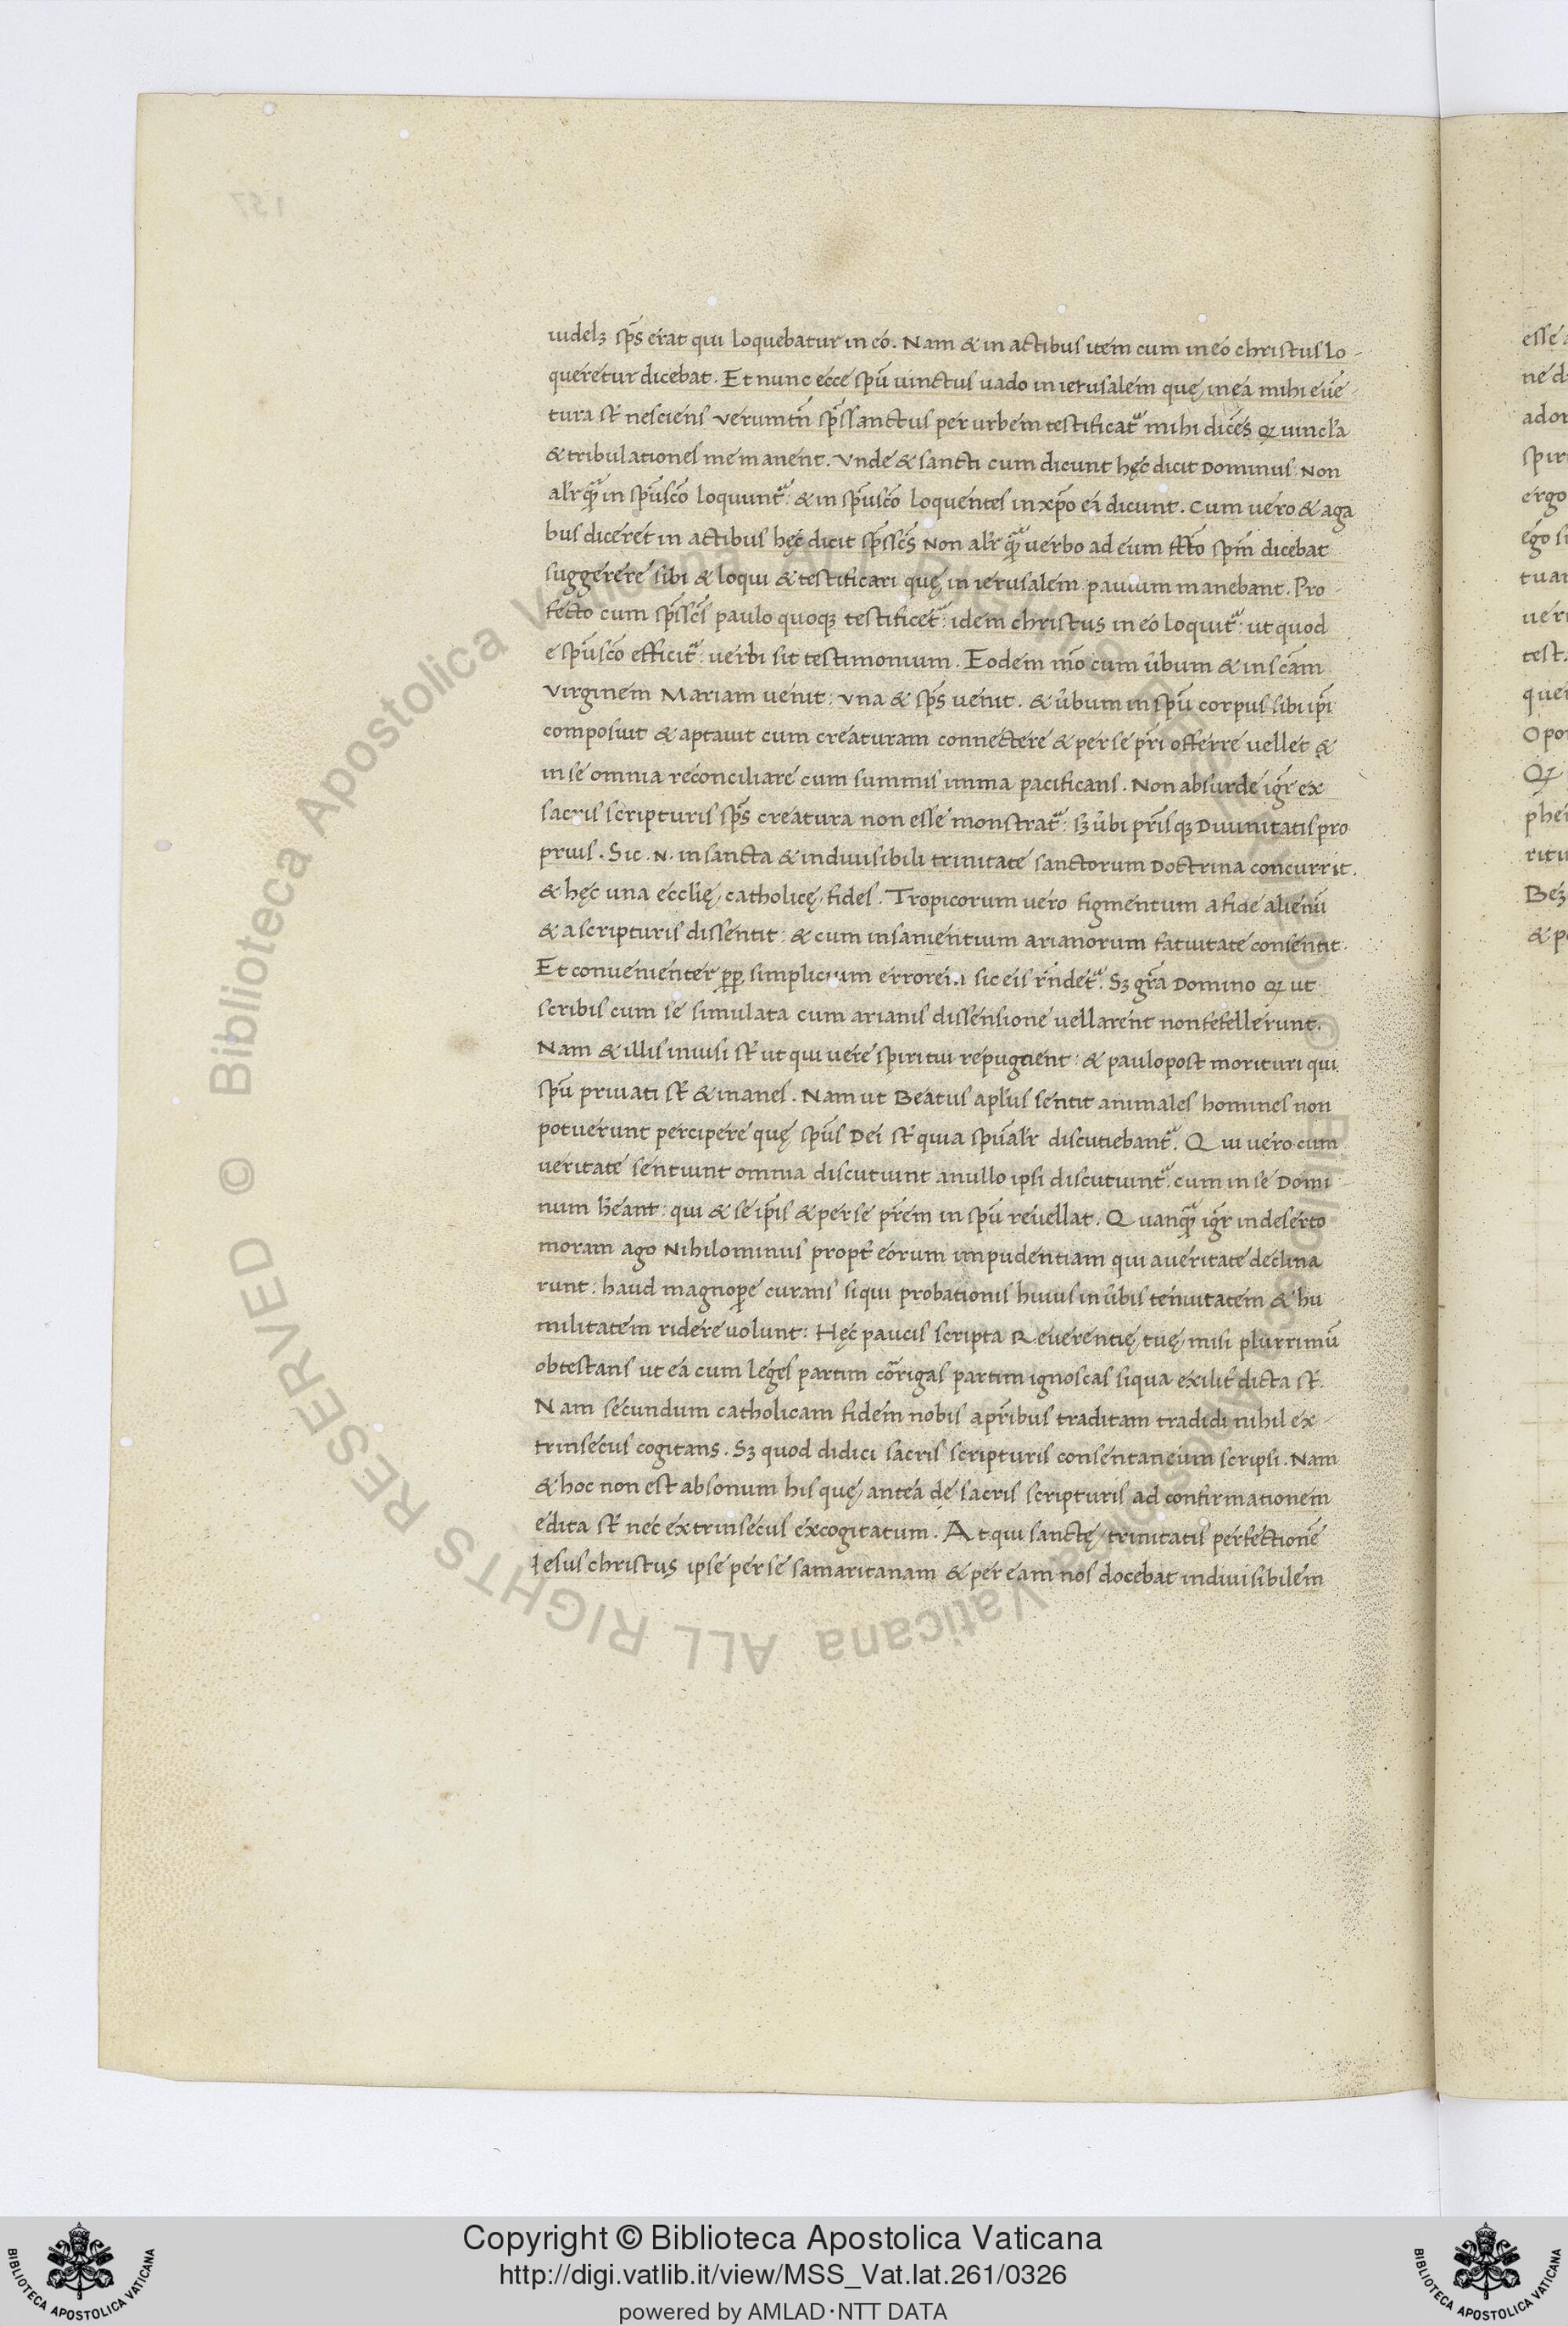 uidelꝫ sp̃s erat qui loquebatur in eo. Nam & in actibus item cum in eo christus lo-
queretur dicebat. Et nunc ecce spũ uinctus uado in ierusalem quę in ea mihi euẽ-
tura st̃ nesciens verumtñ sp̃ssanctus per urbem testificat᷑ mihi dicẽs ꝙ uincl'a
& tribulationes me manent. Vnde & sancti cum dicunt hęc dicit Dominus: Non
al'r q̃ in spũscõ loquunt᷑: & in spũscõ loquentes in xp̃o ea dicunt. Cum uero & aga
bus diceret in actibus hęc dicit sp̃ssc̃s Non al'r q̃ uerbo ad eum fc̃to sp̃m dicebat
suggerere sibi & loqui & testificari quę in ierusalem paulum manebant. Pro-
fecto cum sp̃ssc̃s paulo quoqꝫ testificet᷑: idem christus in eo loquit᷑: ut quod
e spũscõ efficit᷑: uerbi sit testimonium. Eodem mõ cum ũbum & in scãm
virginem Mariam uenit: vna & sp̃s uenit. & ũbum in spũ corpus sibi ip̃i
composuit & aptauit cum creaturam connectere & per se pr̃i offerre uellet &
in se omnia reconciliare cum summis imma pacificans. Non absurde igr̃ ex
sacris scripturis sp̃s creatura non esse monstrat᷑: sꝫ ũbi pr̃isqꝫ Diuinitatis pro
prius. Sic .N. in sancta & indiuisibili trinitate sanctorum Doctrina concurrit.
& hęc una eccl'ię catholicę fides. Tropicorum vero figmentum a fide alienũ
& a scripturis dissentit: & cum insanientium arianorum fatuitate consentit.
Et conuenienter pp̱ simplicium errorem sic eis rñdet᷑. Sꝫ gr̃a Domino ꝙ ut
scribis cum se simulata cum arianis dissensione uellarent non fefellerunt.
Nam & illis inuisi st̃ ut qui vere spiritui repugnent: & paulopost morituri qui
spũ priuati st̃ & inanes. Nam ut Beatus apl'us sentit animales homines non
potuerunt percipere quę spũs Dei st̃ quia spũal'r discutiebant᷑. Qui uero cum
ueritate sentiunt omnia discutiunt a nullo ipsi discutiunt᷑ cum in se Domi-
num hẽant: qui & se ip̃is & per se pr̃em in spũ reuellat. Quanq̃ igr̃ in deserto
moram ago Nihilominus propt̃ eorum impudentiam qui a ueritate declina
runt: haud magnope curans siqui probationis huius in ũbis tenuitatem & hu-
militatem ridere uolunt: Hęc paucis scripta Reuerentię tuę misi plurrimũ
obtestans ut ea cum leges partim cõrigas partim ignoscas siqua exilit̃ dicta st̃.
Nam secundum catholicam fidem nobis a pr̃ibus traditam tradidi nihil ex-
trinsecus cogitans. Sꝫ quod didici sacris scripturis consentaneum scripsi. Nam
& hoc non est absonum his quę antea de sacris scripturis ad confirmationem
edita st̃ nec extrinsecus excogitatum. At qui sanctę trinitatis perfectionẽ
Iesus christus ipse per se samaritanam & per eam nos docebat indiuisibilem
Copyright © Biblioteca Apostolica Vaticana
http://digi.vatlib.it/view/MSS_Vat.lat.261/0326
powered by AMLAD·NTT DATA